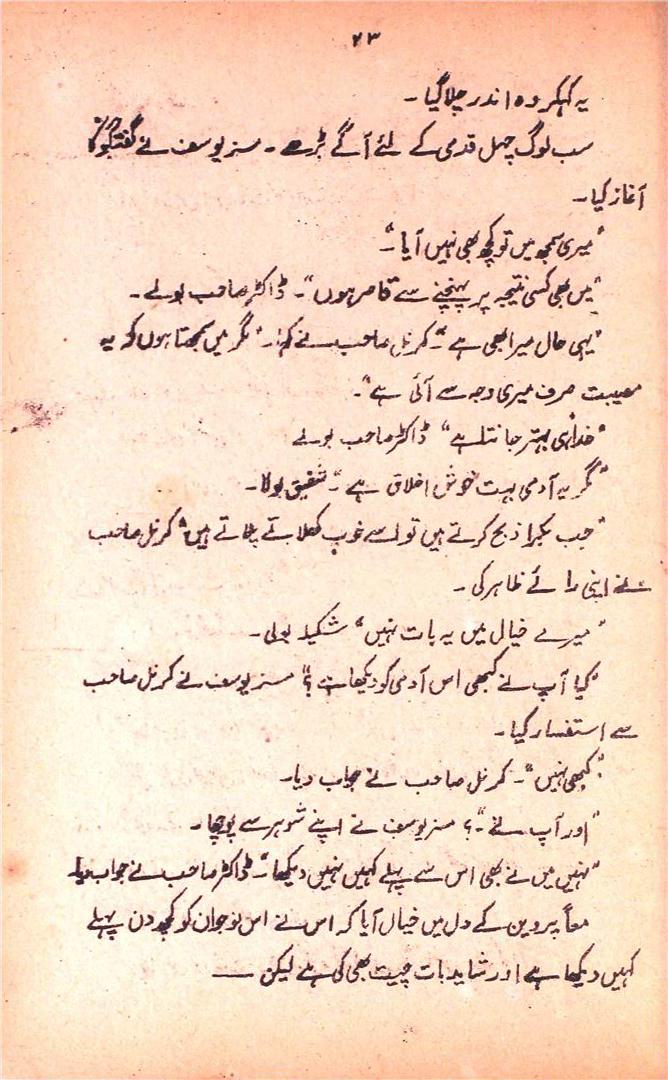 ۲۳
یہ کہکر وہ اندر چلا گیا۔
سب لوگ چہل قدمی کے لئے آگے بڑھے۔ مسز یوسف نے گفتگو کا
آغاز کیا۔
"میری سمجھ میں تو کچھ بھی نہیں آیا"۔
"میں بھی کسی نتیجہ پر پہنچنے سے قاصر ہوں"۔ ڈاکٹر صاحب بولے۔
"یہی حال میرا بھی ہے"۔ کرنل صاحب نے کہا۔ "مگر میں سمجھتا ہوں کہ یہ
مصیبت صرف میری وجہ سے آئی ہے"۔
"خدا ہی بہتر جانتا ہے" ڈاکٹر صاحب بولے
"مگر یہ آدمی بہت خوش اخلاق ہے"۔ شفیق بولا۔
"جب بکرا ذبح کرتے ہیں تو اسے خوب کھلاتے پلاتے ہیں" کرنل صاحب
نے اپنی رائے ظاہر کی۔
"میرے خیال میں یہ بات نہیں" شکیلہ بولی۔
"کیا آپ نے کبھی اس آدمی کو دیکھا ہے؟" مسز یوسف نے کرنل صاحب
سے استفسار کیا۔
"کبھی نہیں"۔ کرنل صاحب نے جواب دیا۔
"اور آپ نے"۔؟ مسز یوسف نے اپنے شوہر سے پوچھا۔
"نہیں میں نے بھی اس سے پہلے کہیں نہیں دیکھا"۔ ڈاکٹر صاحب نے جواب دیا۔
معاً پروین کے دل میں خیال آیا کہ اس نے اس نوجوان کو کچھ دن پہلے
کہیں دیکھا ہے اور شاید بات چیت بھی کی ہے لیکن ——